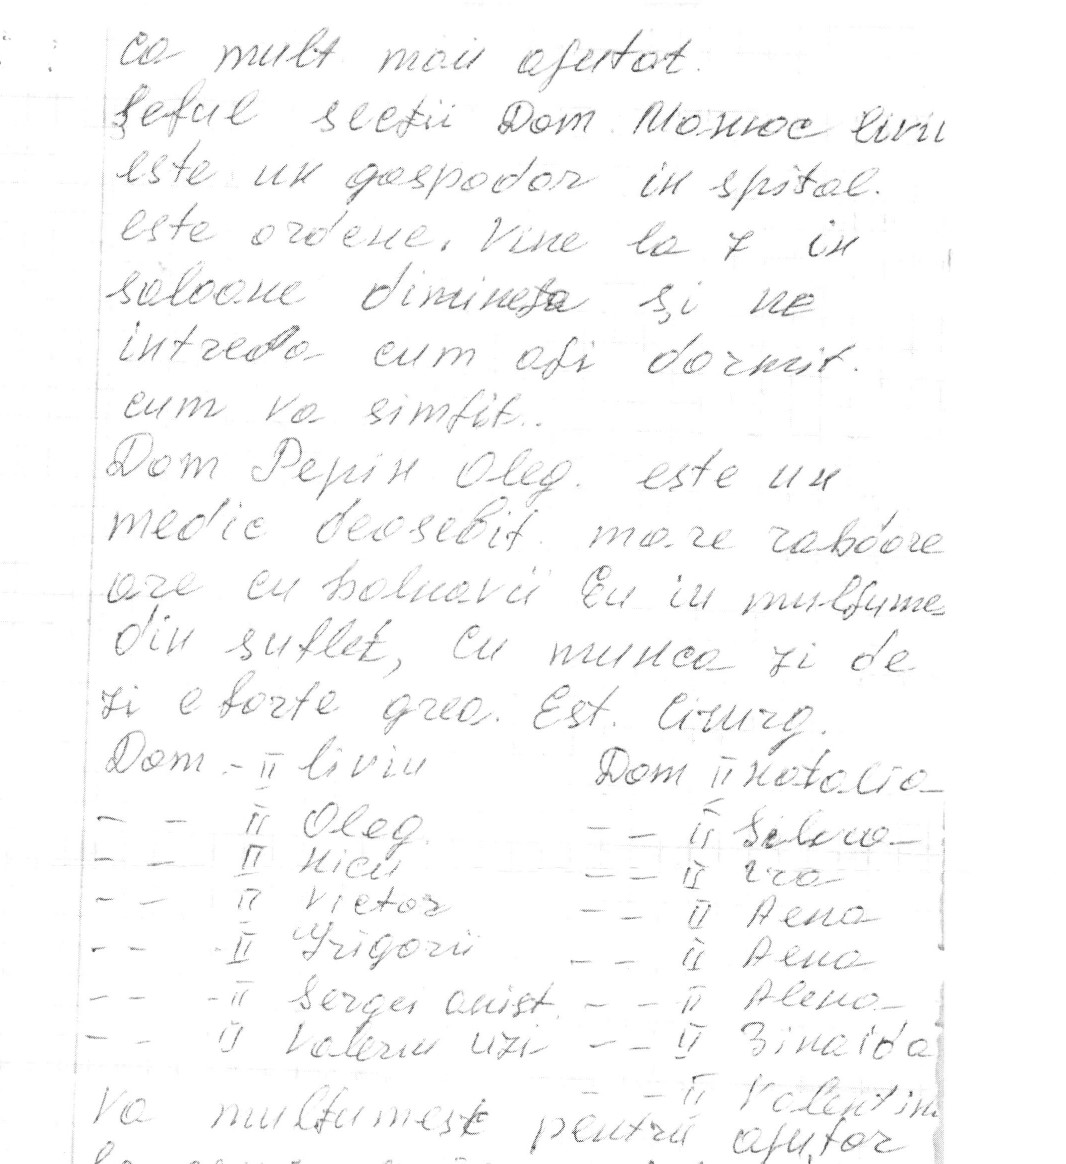 ca mult mau ajutat.
Şeful secţii Dom Monroc Liviu
este un gospodar in spital.
este ordene. Vine la 7 in
saloone dimineţa şi ne
intreabo cum aţi dormit.
cum va simţit..
Dom Pepin Oleg. este un
medic deosebit. mare rabdare
are cu bolnavii Eu ii mulţumes
din suflet, Cu munca zi de
zi e forte grea. Est. Cirurg.
Dom - II Liviu Dom II Natalia
- - II Oleg. - - II Silvia
- - II Nicu - - II Ira
- - II Victor - - II Aena
- - II Grigorii - - II Aena
- - II Sergei anist. - - II Alena
- - II Valeriu uzi - - II Zinaida
- - II Valentin
Va mulţumesk pentru ajutor